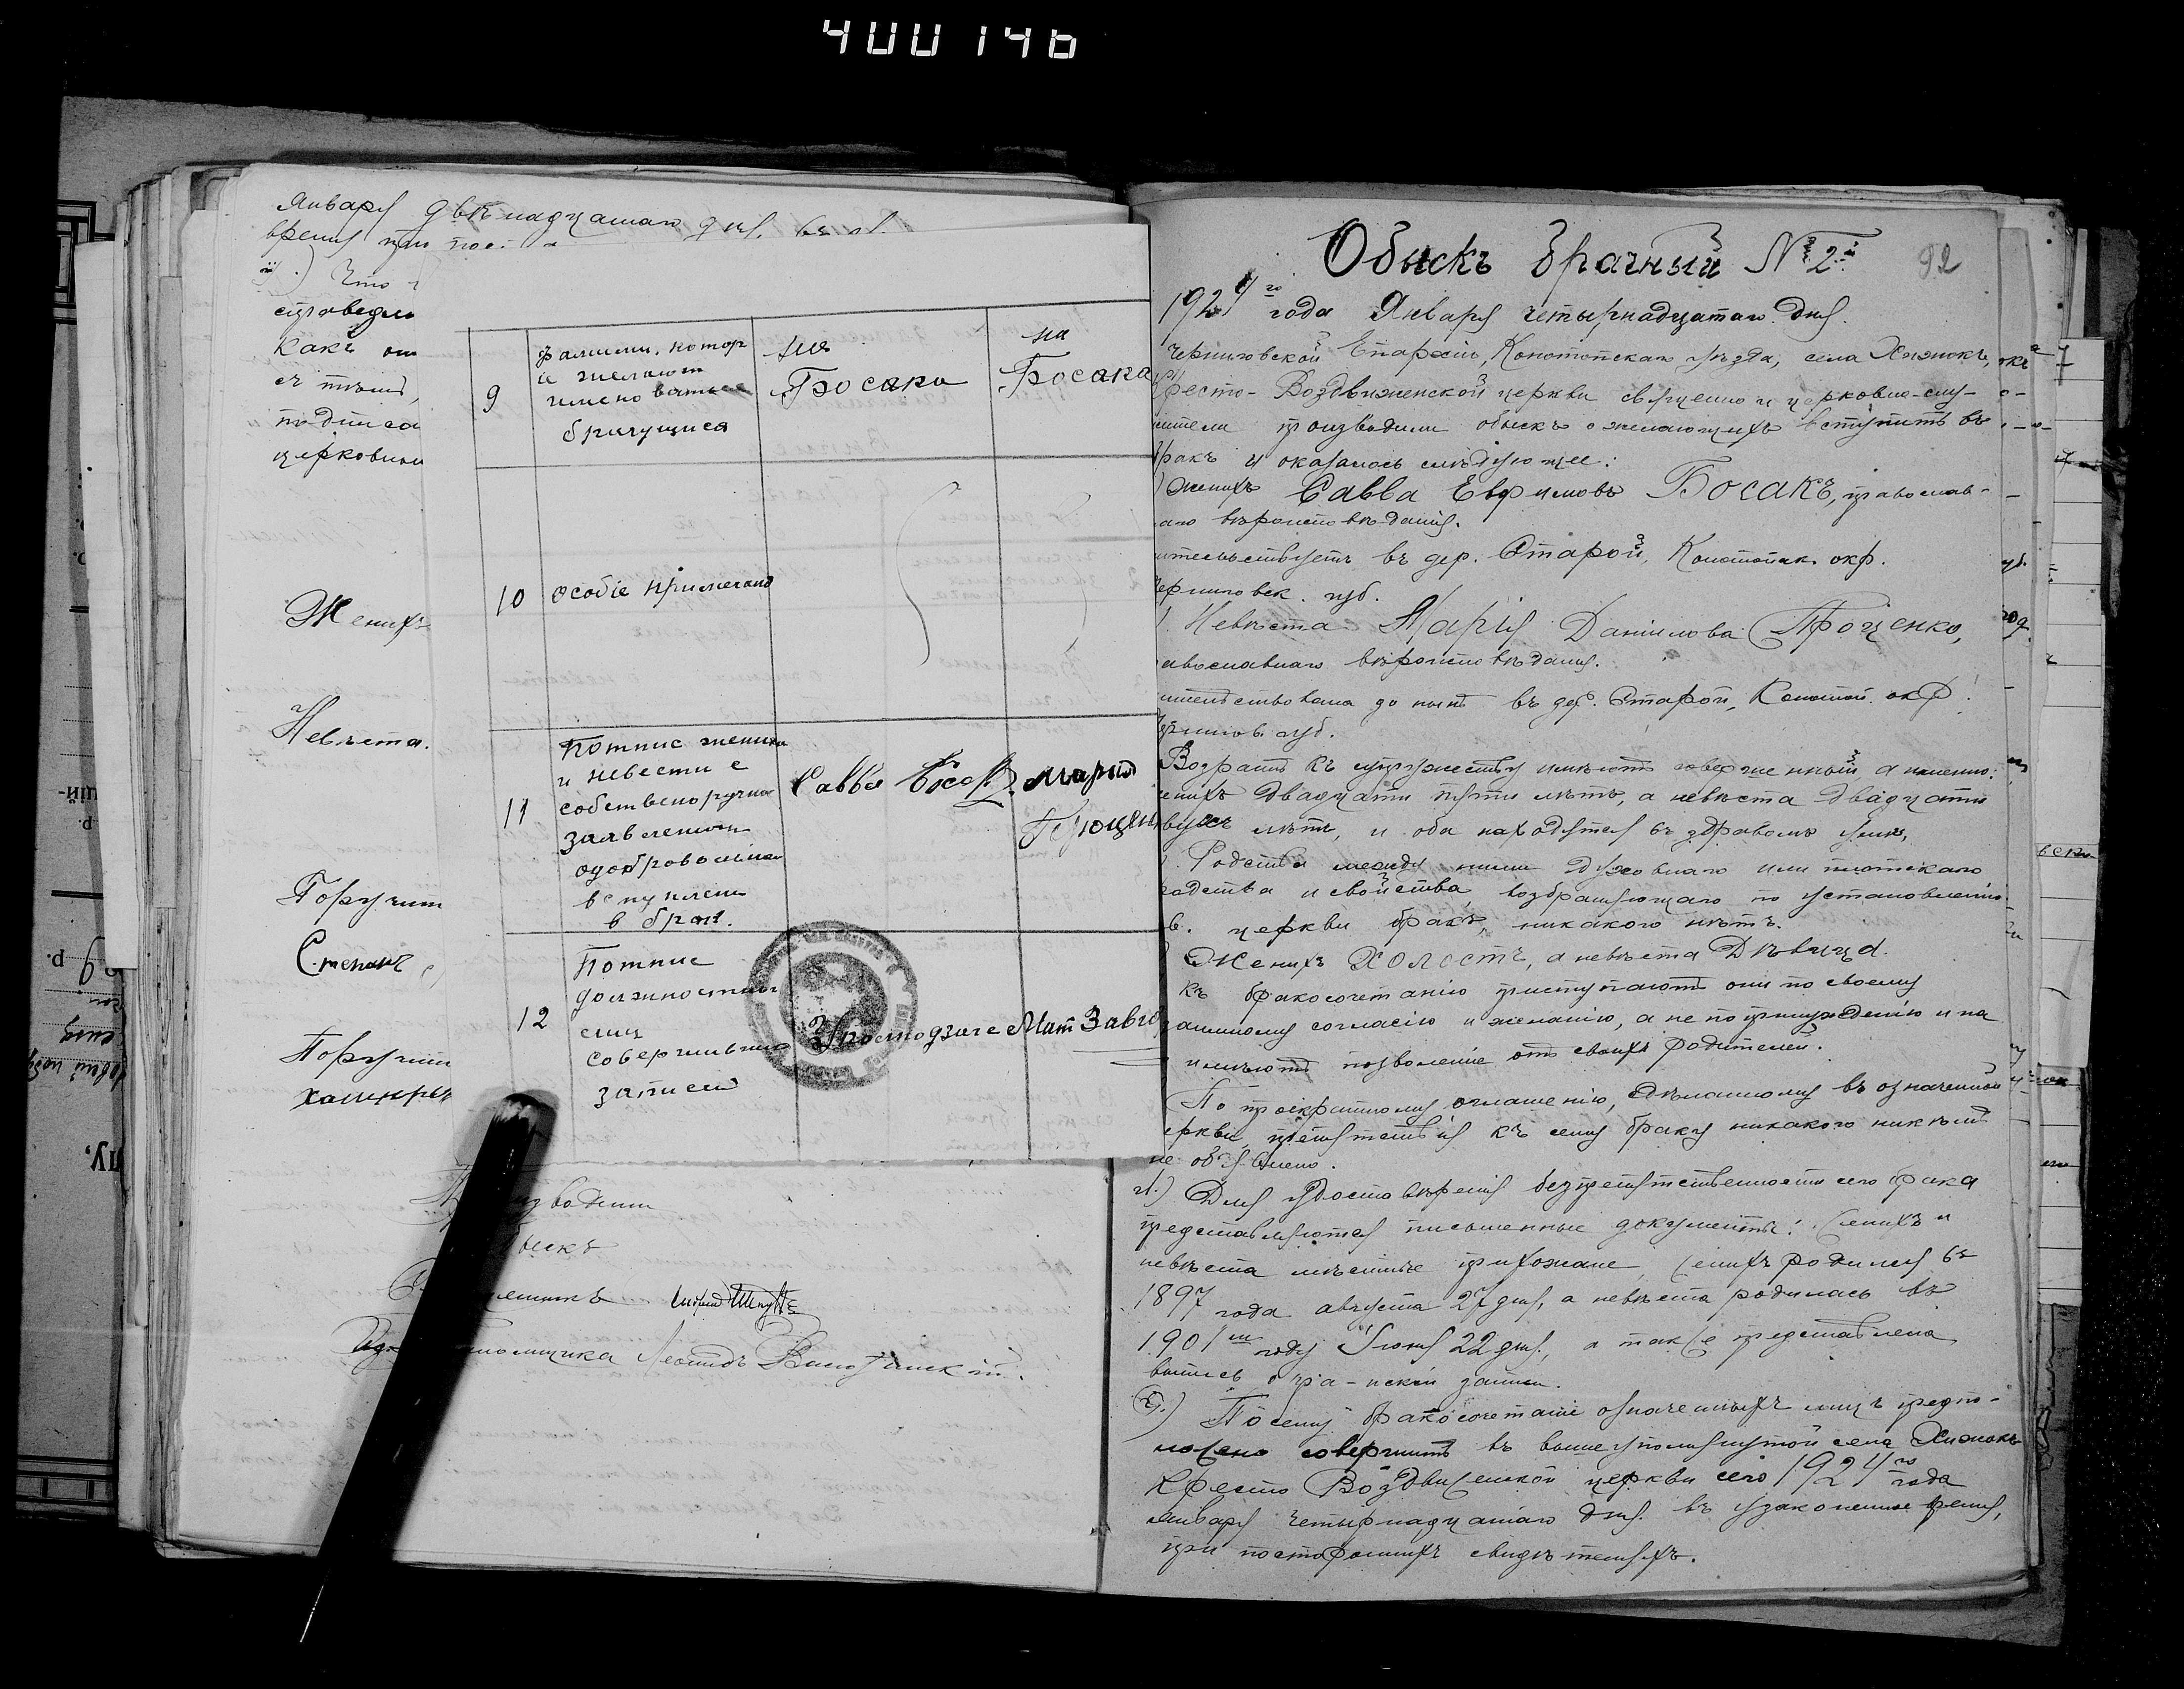 400146
Января двѣнадцатаго дня
время при
Что
справедли
какъ
съ тѣмъ,
подписа
церковны
Женихъ
Невѣста.
Поручит
Степанъ
Поручит
9
фамили, котор
іе желают
имено ваться
брачущися
на
Босака
на
Босака
10
особіе примечано
11
Потпис жениха
и невести с
собственоручни
заявлением
одобровольном
вступлени
в брак.
Савва Босак
Мария
Проценк
12
Потпис
должностных
лиц
совершивших
записей
Обыскъ брачный № 2й
92
1924го года Января четырнадцатаго дня.
Черниговской Епархіи, Конотопскаго уѣзда, села Хижокъ,
Кресто-Воздвиженской церкви священно и церковно-слу-
жители производили обыскъ о желающихъ вступить въ
бракъ и оказалось слѣдующее:
Женихъ Савва Евфимовъ Босакъ, православ-
аго вѣроисповѣданія.
ительствуетъ въ дер. Старой, Конотопск. окр.
Черниговск. губ.
Невѣста Марія Даніилова Проценко,
авославнаго вѣроисповѣданія.
ительствовала до нынѣ въ дер. Старой, Конотоп. окр.
Чернигов. губ.
Возрастъ къ супружеству имѣютъ совершенный, а именно:
енихъ двадцати пяти лѣтъ, а невѣста двадцати
вухъ лѣтъ, и оба находятся въ здравомъ умѣ.
Родства между ними духовнаго или плотскаго
родства и свойства, возбраняющаго по установленію
св. церкви бракъ, никакого нѣтъ.
Женихъ холостъ, а невѣста дѣвица.
Къ бракосочетанію приступаютъ они по своему
взаимному согласію и желанію, а не по принужденію и на
имѣютъ позволеніе отъ своихъ родителей.
По троекратному оглашенію, сдѣланному въ означенной
церкви, препятствія къ сему браку никакого никѣмъ
не объявлено.
Для удостовѣренія безпрепятственности сего брака
представляются письменные документы: женихъ и
невѣста мѣстные прихожане, женихъ родился въ
1897 года августа 27 дня, а невѣста родилась въ
1901м году Іюня 22 дня, а также представлена
выпись о гра-нской записи.
Посему бракосочетаніе означенныхъ лицъ предпо-
ложено совершить въ вышеупомянутой села Хижокъ
Кресто Воздвиженской церкви сего 1924го года
Января четырнадцатаго дня въ узаконенное время,
при постороннихъ свидѣтеляхъ.
Производили
обыскъ
Священникъ
Леонидъ